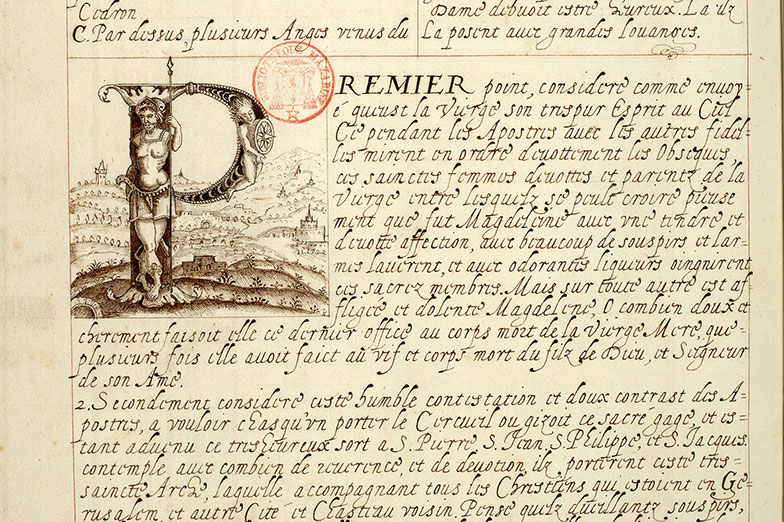 Cedron
C. Par dessus plusieurs Anges venus du
Dame debuoit estre La ilz
La posent auec grandes Louanges.
PREMIER point, considere comme enuoy-
é qu'eust la Vierge son trespur Esprit au Ciel
Ce pendant les Apostres auec les autres fidel-
les mirent en ordre deuottement les Obseques,
ces sainctes femmes deuottes et parentz de la
Vierge entre lesquelz se peult croire pieuse
ment que fut Magdeleine auec vne tendre et
deuotte affection, auec beaucoup de souspirs et lar-
mes lauerent, et auec odorantes liqueurs oingnirent
ces sacrez membres. Mais sur toute autre est af-
fligee et dolente Magdelene, O combien doux et
cherement faisoit elle ce dernier office au corps mort de la Vierge Mere, que-
plusieurs fois elle auoit faict au vif et corps mort du filz de Dieu, et Seigneur
de son Ame.
2. Secondement considere ceste humble contestation et doux contrast des A-
postres, a vouloir chasqu'vn porter le Cercueil ou gizoit ce sacré gage, et es-
tant aduenu ce tresheureux sort a S. Pierre, S. Jean, S. Philippe, et S. Jacques.
contemple auec combien de reuerence, et de deuotion, ilz, porterent ceste tres-
saincte Arche, laquelle accompagnant tous les Chrestiens qui estoient en Ge-
rusalem, et autre Cité et Chasteau voisin. Pense quelz souspirs,